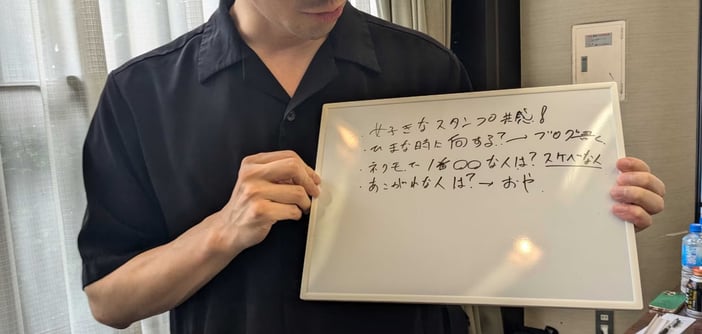 ・好きなスタンプ共感!
・ひまな時に何する?→ブログ書く
・ネクモで1番〇〇な人は?スケベな人
・あこがれな人は?→おや